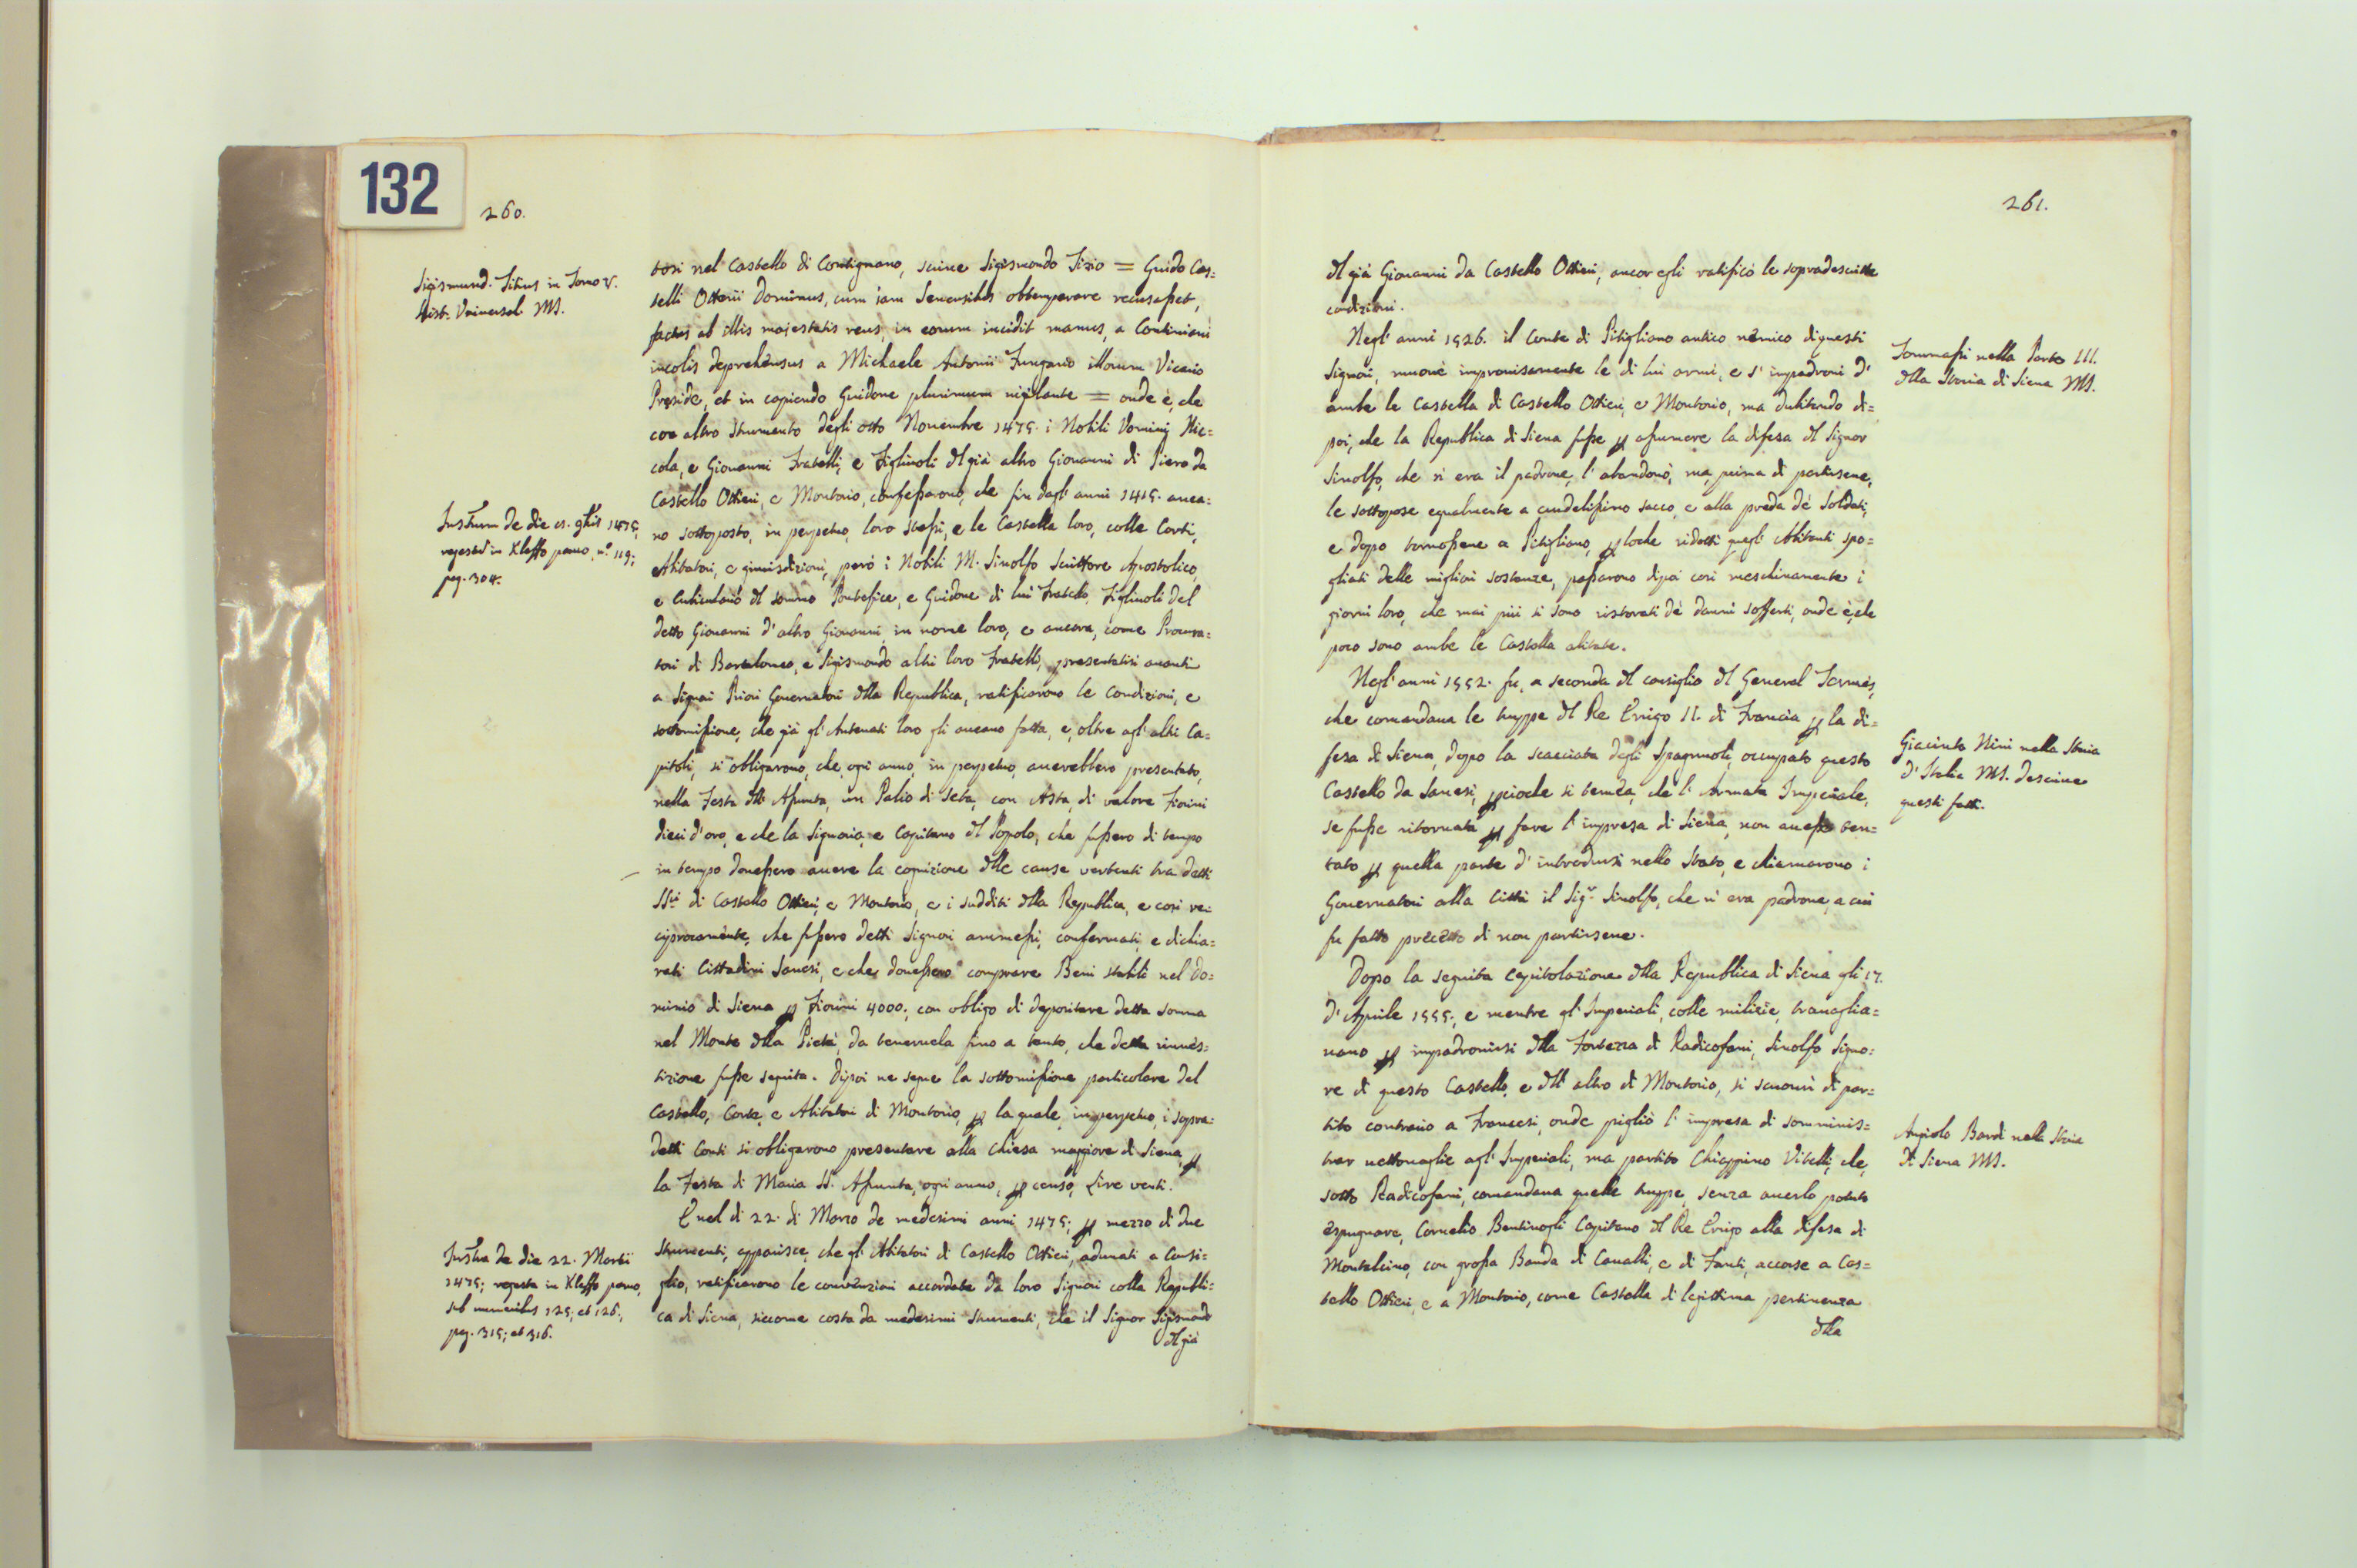 132
260.
Sigismund. Titius in Tomo V.
Hist. Vniversal. MS.
tosi nel Castello di Contignano, scrive Sigismondo Tizio = Guido Cas=
telli Otterii Dominus, cum iam Senensibus obtemperare recusasset,
factus ab illis majestatis reus, in eorum incidit manus, a Continiani
incolis deprehensus a Michaele Antonii Fungario illorum Vicario
Preside, et in capiendo Guidone plurimum vigilante = onde è, che
con altro Strumento degli otto Novembre 1475. i Nobili Domini Nic=
cola, e Giovanni Fratelli, e Figlinoli dl già altro Giovanni di Piero da
Castello Ottieri, e Montorio, confessarono, che fin dagl' anni 1415. avea=
no sottoposto, in perpetuo, loro stessi, e le Castella loro, colle Corti,
Abitatori, e giurisdizioni, però i Nobili M. Sinolfo Scrittore Apostolico,
e Cubiculario dl sommo Pontefice, e Guidone di lui Fratello, Figlinoli del
detto Giovanni d' altro Giovanni, in nome loro, e ancora, come Procura=
tori di Bartolomeo, e Sigismondo altri loro Fratelli, presentatisi avanti
a Signori Priori Governatori dlla Republica, ratificarono le Condizioni, e
sottomissione, che già gl' Antenati loro gli aveano fatta, e, oltre agl' altri Ca=
pitoli, si obligarono, che, ogni anno, in perpetuo, averebbero presentato,
nella Festa dll' Assunta, un Palio di Seta, con Asta, di valore Fiorini
dieci d' oro, e che la Signoria, e Capitano dl Popolo, che fussero di tempo
in tempo dovessero avere la cognizione dlle cause vertenti tra detti
SSri di Castello Ottieri, e Montorio, e i sudditi dlla Republica, e così re=
ciprocamente, che fussero detti Signori ammessi, confermati, e dichia=
rati Cittadini Sanesi, e che dovessero comprare Beni stabili nel Do=
minio di Siena p Fiorini 4000., con obligo di depositare detta somma
nel Monte dlla Pietà, da tenervela fino a tanto, che detta rinves=
tizione fusse seguita. Dipoi ne segue la sottomissione particolare del
Castello, Corte, e Abitatori di Montorio, p la quale, in perpetuo, i sopra=
detti Conti si obligarono presentare alla Chiesa maggiore di Siena, p
la Festa di Maria SS. Assunta, ogni anno, p censo, Lire venti.
E nel dì 22. di Marzo de medesimi anni 1475; p mezzo di due
Strumenti, apparisce, che gl' Abitatori di Castello Ottieri, adunati a Consi=
glio, ratificarono le convenzioni accordate da loro Signori colla Republi=
ca di Siena, siccome costa da medesimi Strumenti, che il Signor Sigismondo
dl già
Instrum de die 8. 9bris 1475,
regestr in Kleffo parvo, n.o 119;
pag. 304.
Instra de die 22. Martii
1475; regesta in Kleffo parvo,
sub numeribus 125; et 126;
pag. 315; et 316.
261.
dl già Giovanni da Castello Ottieri, ancor egli ratificò le sopradescritte
condizioni.
Negl' anni 1526. il Conte di Pitigliano antico nemico di questi
Signori, muovè improvisamente le di lui armi, e s' impadronì d'
ambe le Castella di Castello Ottieri, e Montorio, ma dubitando di=
poi, che la Republica di Siena fusse p assumere la difesa dl Signor
Sinolfo, che n' era il padrone, l' abandonò, ma, prima di partirsene,
le sottopose egualmente a crudelissimo sacco, e alla preda de' Soldati,
e dopo tornossene a Pitigliano, p loche ridotti quegl' Abitanti spo=
gliati delle migliori sostanze, passarono dipoi così meschinamente i
giorni loro, che mai più si sono ristorati de' danni sofferti, onde è, che
poco sono ambe le Castella abitate.
Negl' anni 1552. fu, a seconda dl consiglio dl General Termes,
che comandava le truppe dl Re Enrigo II. di Francia p la di=
fesa di Siena, dopo la scacciata degli Spagnuoli, occupato questo
Castello da Sanesi, pcioche si temeva, che l' Armata Imperiale,
se fusse ritornata p fare l' impresa di Siena, non avesse ten=
tato p quella parte d' introdursi nello Stato, e chiamarono i
Governatori alla Città il Sigr Sinolfo, che n' era padrone, a cui
fu fatto precetto di non partirsene.
Dopo la seguita Capitolazione dlla Republica di Siena gli 17.
d' Aprile 1555; e mentre gl' Imperiali, colle milizie, travaglia=
vano p impadronirsi dlla Fortezza di Radicofani, Sinolfo Signo=
re di questo Castello, e dll' altro di Montorio, si scuoprì di par=
tito contrario a Francesi, onde pigliò l' impresa di somminis=
trar vettovaglie agl' Imperiali, ma partito Chiappino Vitelli, che,
sotto Radicofani, comandava quelle truppe, senza averlo potuto
espugnare, Cornelio Bentivogli Capitano dl Re Enrigo alla difesa di
Montalcino, con grossa Banda di Cavalli, e di Fanti, accorse a Cas=
tello Ottieri, e a Montorio, come Castella di legittima pertinenza
dlla
Tommasi nella Parte III.
dlla Storia di Siena MS.
Giacinto Nini nella Storia
d' Italia MS. descrive
questi fatti.
Angiolo Bardi nella Storia
di Siena MS.